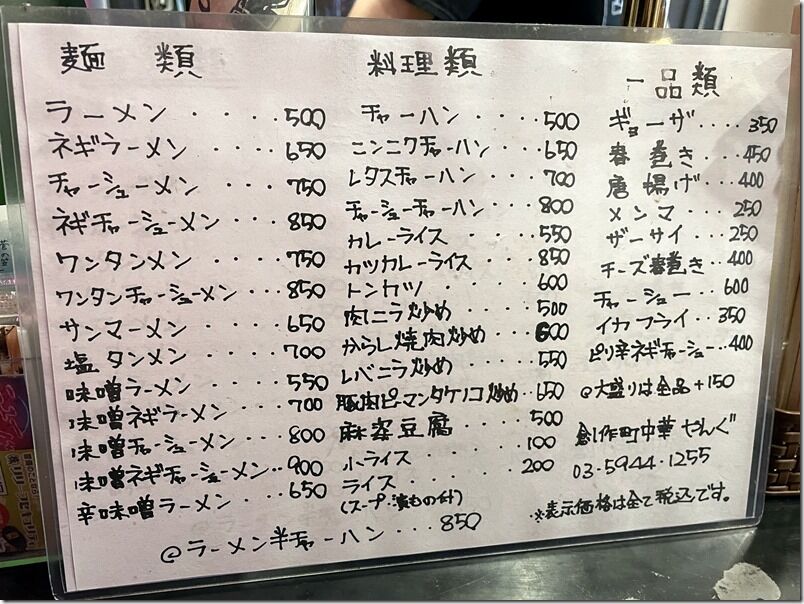 麺 類
ラーメン ・・・・ 500
ネギラーメン ・・・・ 650
チャーシューメン ・・・ 750
ネギチャーシューメン ・・・ 850
ワンタンメン ・・・・ 750
ワンタンチャーシューメン ・・・ 850
サンマーメン ・・・・ 650
塩タンメン ・・・・ 700
味噌ラーメン ・・・・ 550
味噌ネギラーメン ・・・ 700
味噌チャーシューメン ・・・ 800
味噌ネギチャーシューメン ・・ 900
辛味噌ラーメン ・・・・ 650
@ラーメン半チャーハン ・・・ 850
料理類
チャーハン ・・・・ 500
ニンニクチャーハン ・・・ 650
レタスチャーハン ・・・ 700
チャーシューチャーハン ・・ 800
カレーライス ・・・・ 550
カツカレーライス ・・・ 850
トンカツ ・・・・ 600
肉ニラ炒め ・・・・ 500
からし焼肉炒め ・・・ 600
レバニラ炒め ・・・・ 550
豚肉ピーマンタケノコ炒め ・・ 650
麻婆豆腐 ・・・・ 500
小ライス ・・・・ 100
ライス ・・・・ 200
(スープ・漬もの付)
一品類
ギョーザ ・・・ 350
春巻き ・・・ 450
唐揚げ ・・・ 400
メンマ ・・・ 250
ザーサイ ・・・ 250
チーズ春巻き ・・ 400
チャーシュー ・・・ 600
イカフライ ・・・ 350
ピリ辛ネギチャーシュー ・・・ 400
@大盛りは全品+150
創作町中華 やんぐ
03-5944-1255
※表示価格は全て税込です。